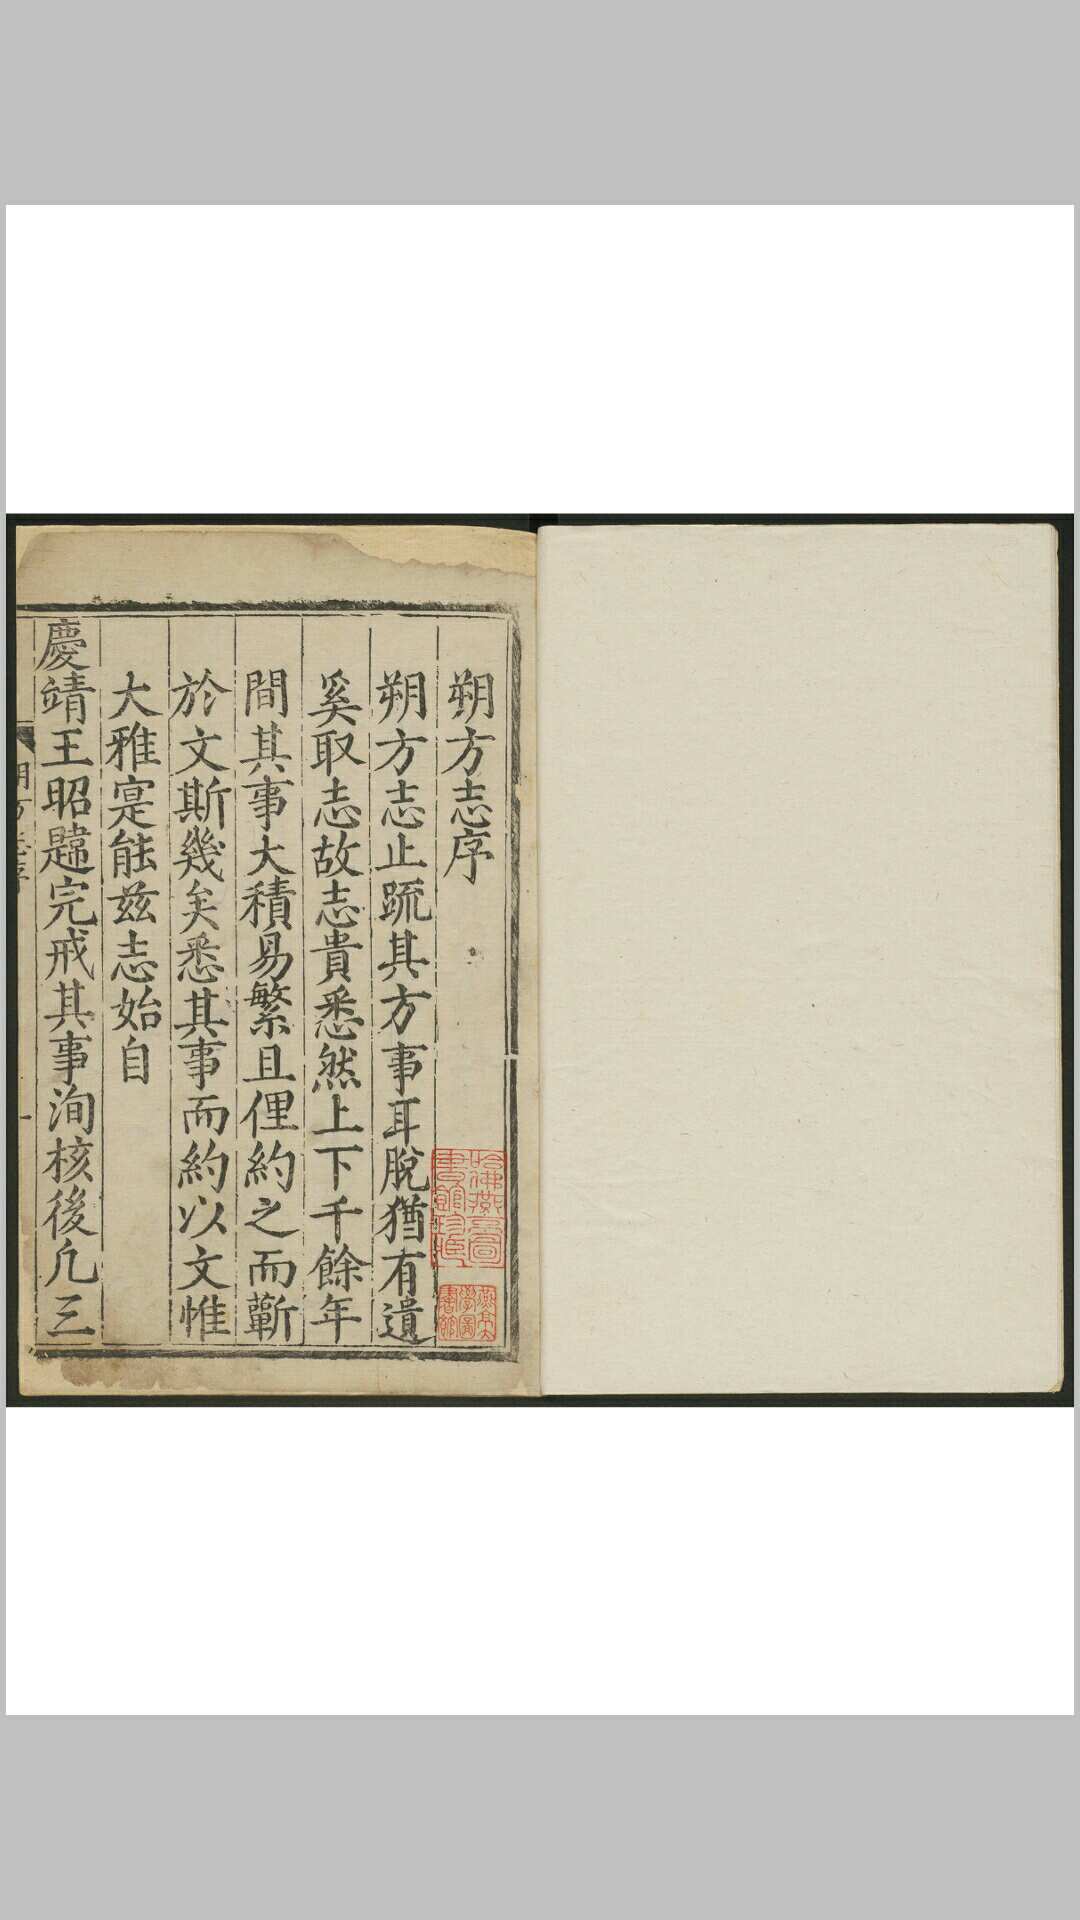 朔方志序
朔方志止䟽其方事耳脫猶有遺
奚取志故志貴悉然上下千餘年
間其事大積易繁且俚約之而蘄
於文斯幾矣悉其事而約以文惟
大雅寔能兹志始自
慶靖王昭韙完戒其事洵核後凢三
朔方志序
一
哈佛燕京圖
書館珍藏